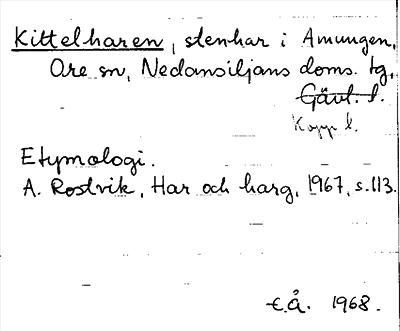 Kittelharen, stenhar i Amungen,
Ore sn, Nedansiljans doms. tg,
Gävl. l.
Kopp l.
Etymologi.
A. Rostvik, Har och harg, 1967, s.113.
E.Å. 1968.